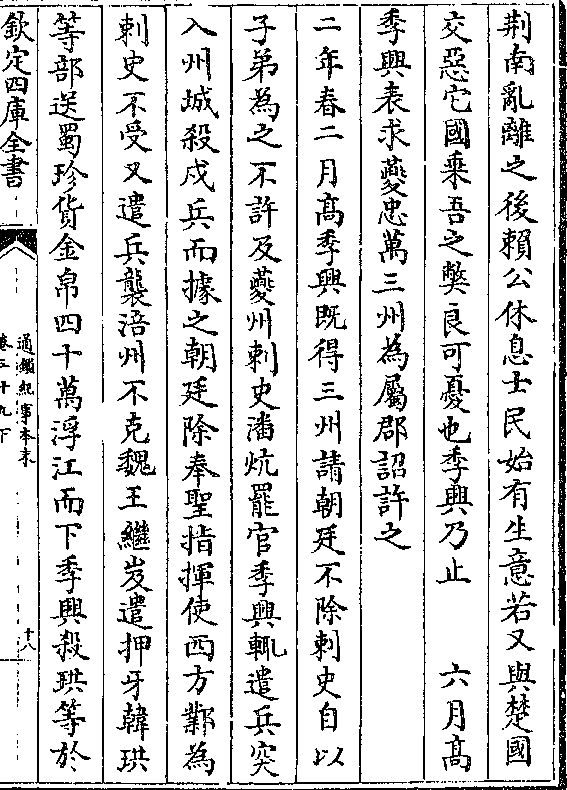 荆南亂離之後賴公休息士民始有生意若又與楚國
交惡它國乗吾之弊良可憂也季興乃止　六月髙
季興表求夔忠萬三州為屬郡詔許之
二年春二月髙季興既得三州請朝廷不除刺史自以
子弟為之不許及夔州刺史潘炕罷官季興輒遣兵突
入州城殺戍兵而據之朝廷除奉聖指揮使西方鄴為
刺史不受又遣兵襲涪州不克魏王繼岌遣押牙韓珙
等部送蜀珍貨金帛四十萬浮江而下季興殺珙等於
欽定四庫全書
通鑑紀事本末
卷三十九下
十八